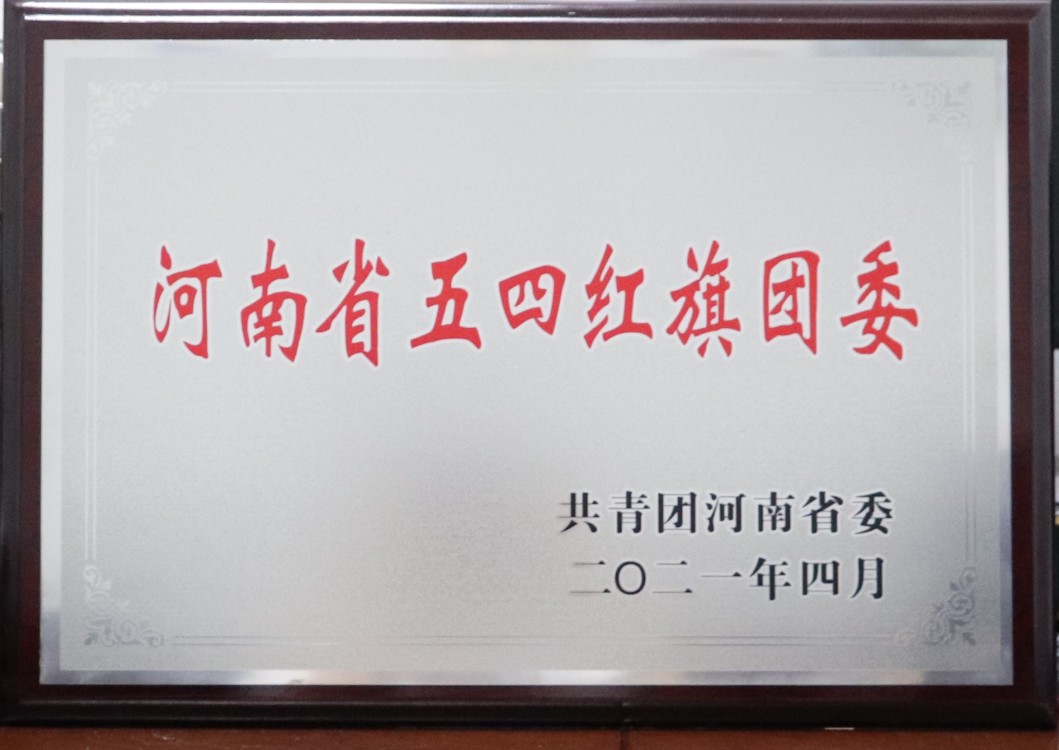 河南省五四红旗团委
共青团河南省委
二〇二一年四月